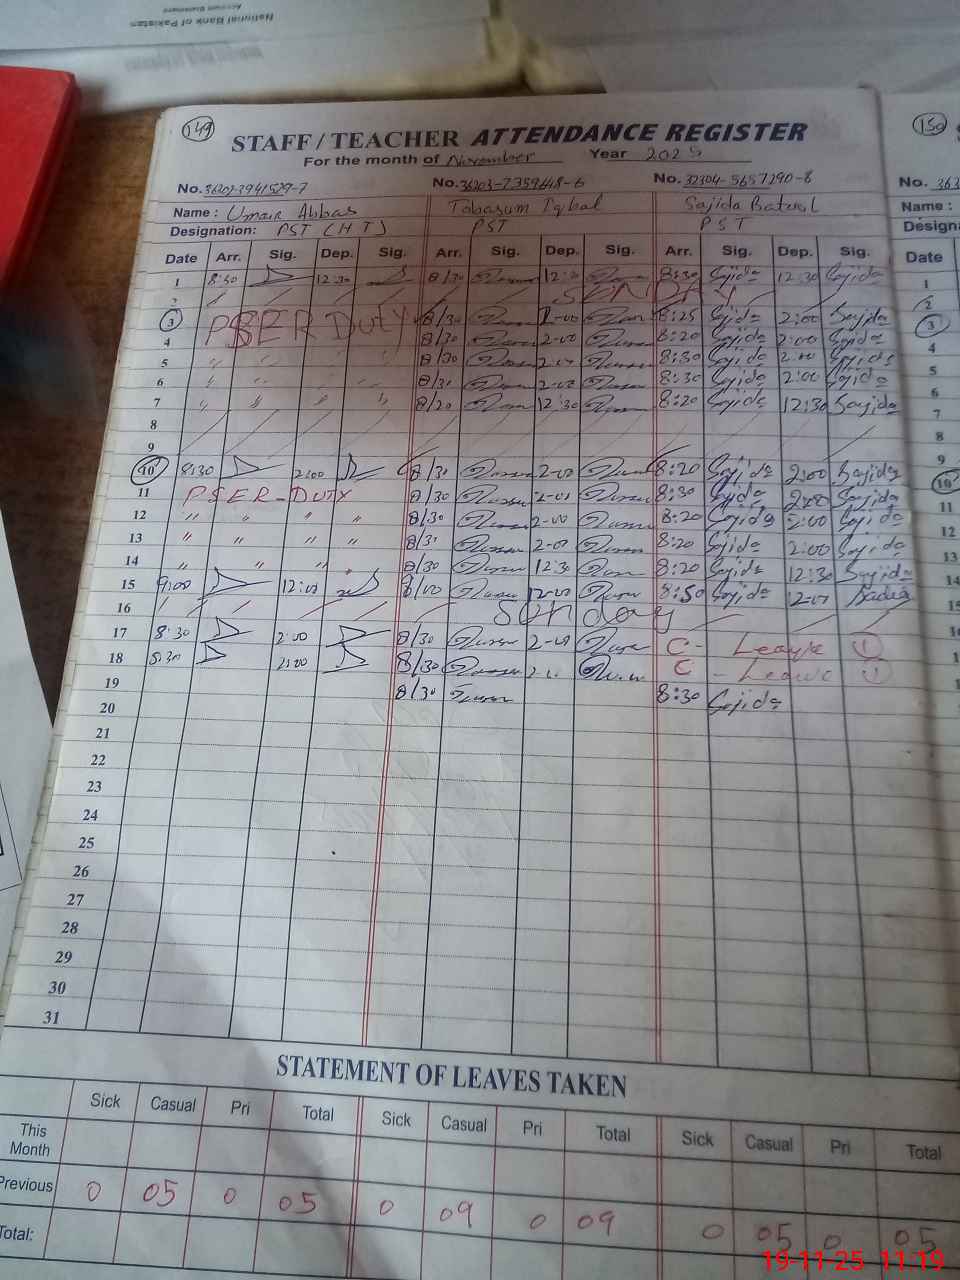 National Bank of Pakistan
Account Statement
149
150
STAFF / TEACHER ATTENDANCE REGISTER
For the month of November Year 2025
No. 36203-3941529-7 No. 36203-7359648-6 No. 32304-5657290-8 No. 363
Name : Umair Abbas Tabasum Iqbal Sajida Batool Name :
Designation: PST (HT) PST PST Design
Date Arr. Sig. Dep. Sig. Arr. Sig. Dep. Sig. Arr. Sig. Dep. Sig. Date
1 8:30 12:30 8/30 12:30 8:30 Sajida 12:30 Sajida 1
2 SUNDAY 2
3 PSER Duty 8/30 2-00 8:25 Sajida 2:00 Sajida 3
4 8/30 2-00 8:20 Sajida 2:00 Sajida 4
5 " " " " 8/30 2-00 8:30 Sajida 2:00 Sajida 5
6 " " " " 8/30 2-00 8:30 Sajida 2:00 Sajida 6
7 " " " " 8/20 12:30 8:20 Sajida 12:30 Sajida 7
8 8
9 9
10 8:30 2:00 8/30 2-00 8:20 Sajida 2:00 Sajida 10
11 PSER-DUTY 8/30 2-00 8:30 Sajida 2:00 Sajida 11
12 " " " " 8/30 2-00 8:20 Sajida 2:00 Sajida 12
13 " " " " 8/30 2-00 8:20 Sajida 2:00 Sajida 13
14 " " " " 8/30 12:30 8:20 Sajida 12:30 Sajida 14
15 9:00 12:00 12-00 8:50 Sajida 12-00 15
16 Sunday
17 8:30 2:00 8/30 2-00 C- Leave 1
18 8:30 2:00 8/30 2-00 C - Leave 1
19 8/30 8:30 Sajida
20
21
22
23
24
25
26
27
28
29
30
31
STATEMENT OF LEAVES TAKEN
Sick Casual Pri Total Sick Casual Pri Total Sick Casual Pri Total
This Month
Previous 0 05 0 05 0 09 0 09 0 05 0 05
Total:
19-11-25 11:19